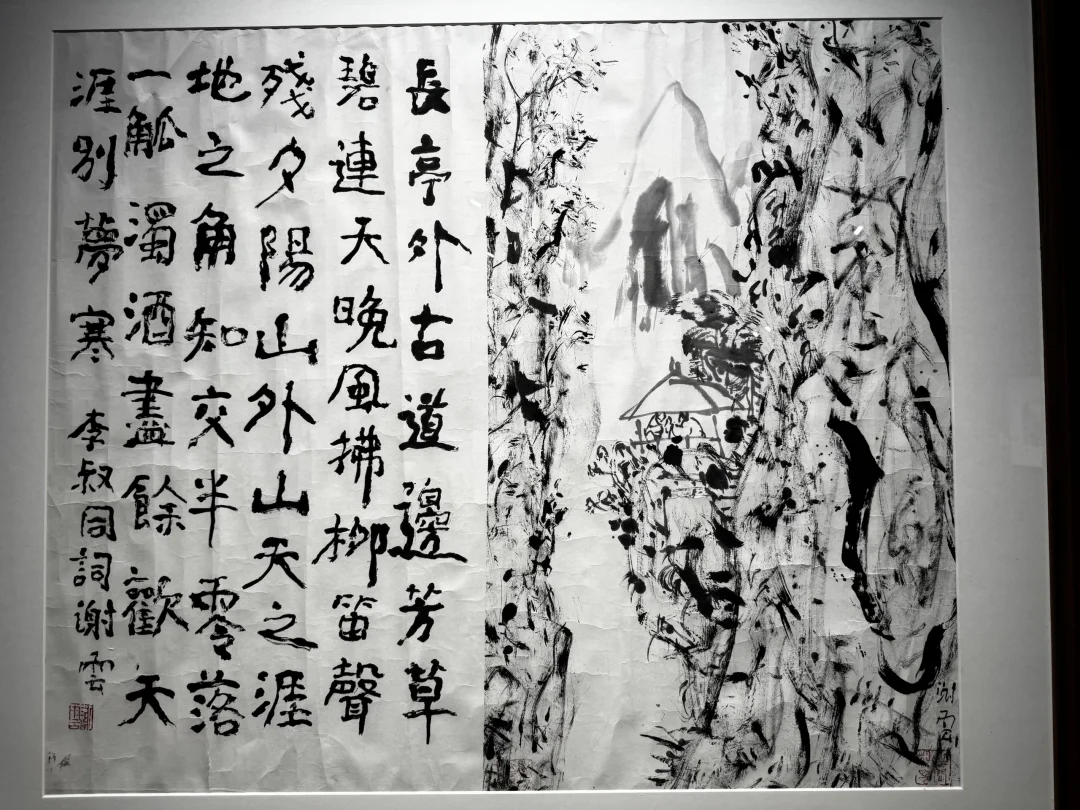 長亭外古道邊芳草
碧連天晚風拂柳笛聲
殘夕陽山外山天之涯
地之角知交半零落
一觚濁酒盡餘歡天
涯別夢寒
李叔同詞謝雲
谢雲